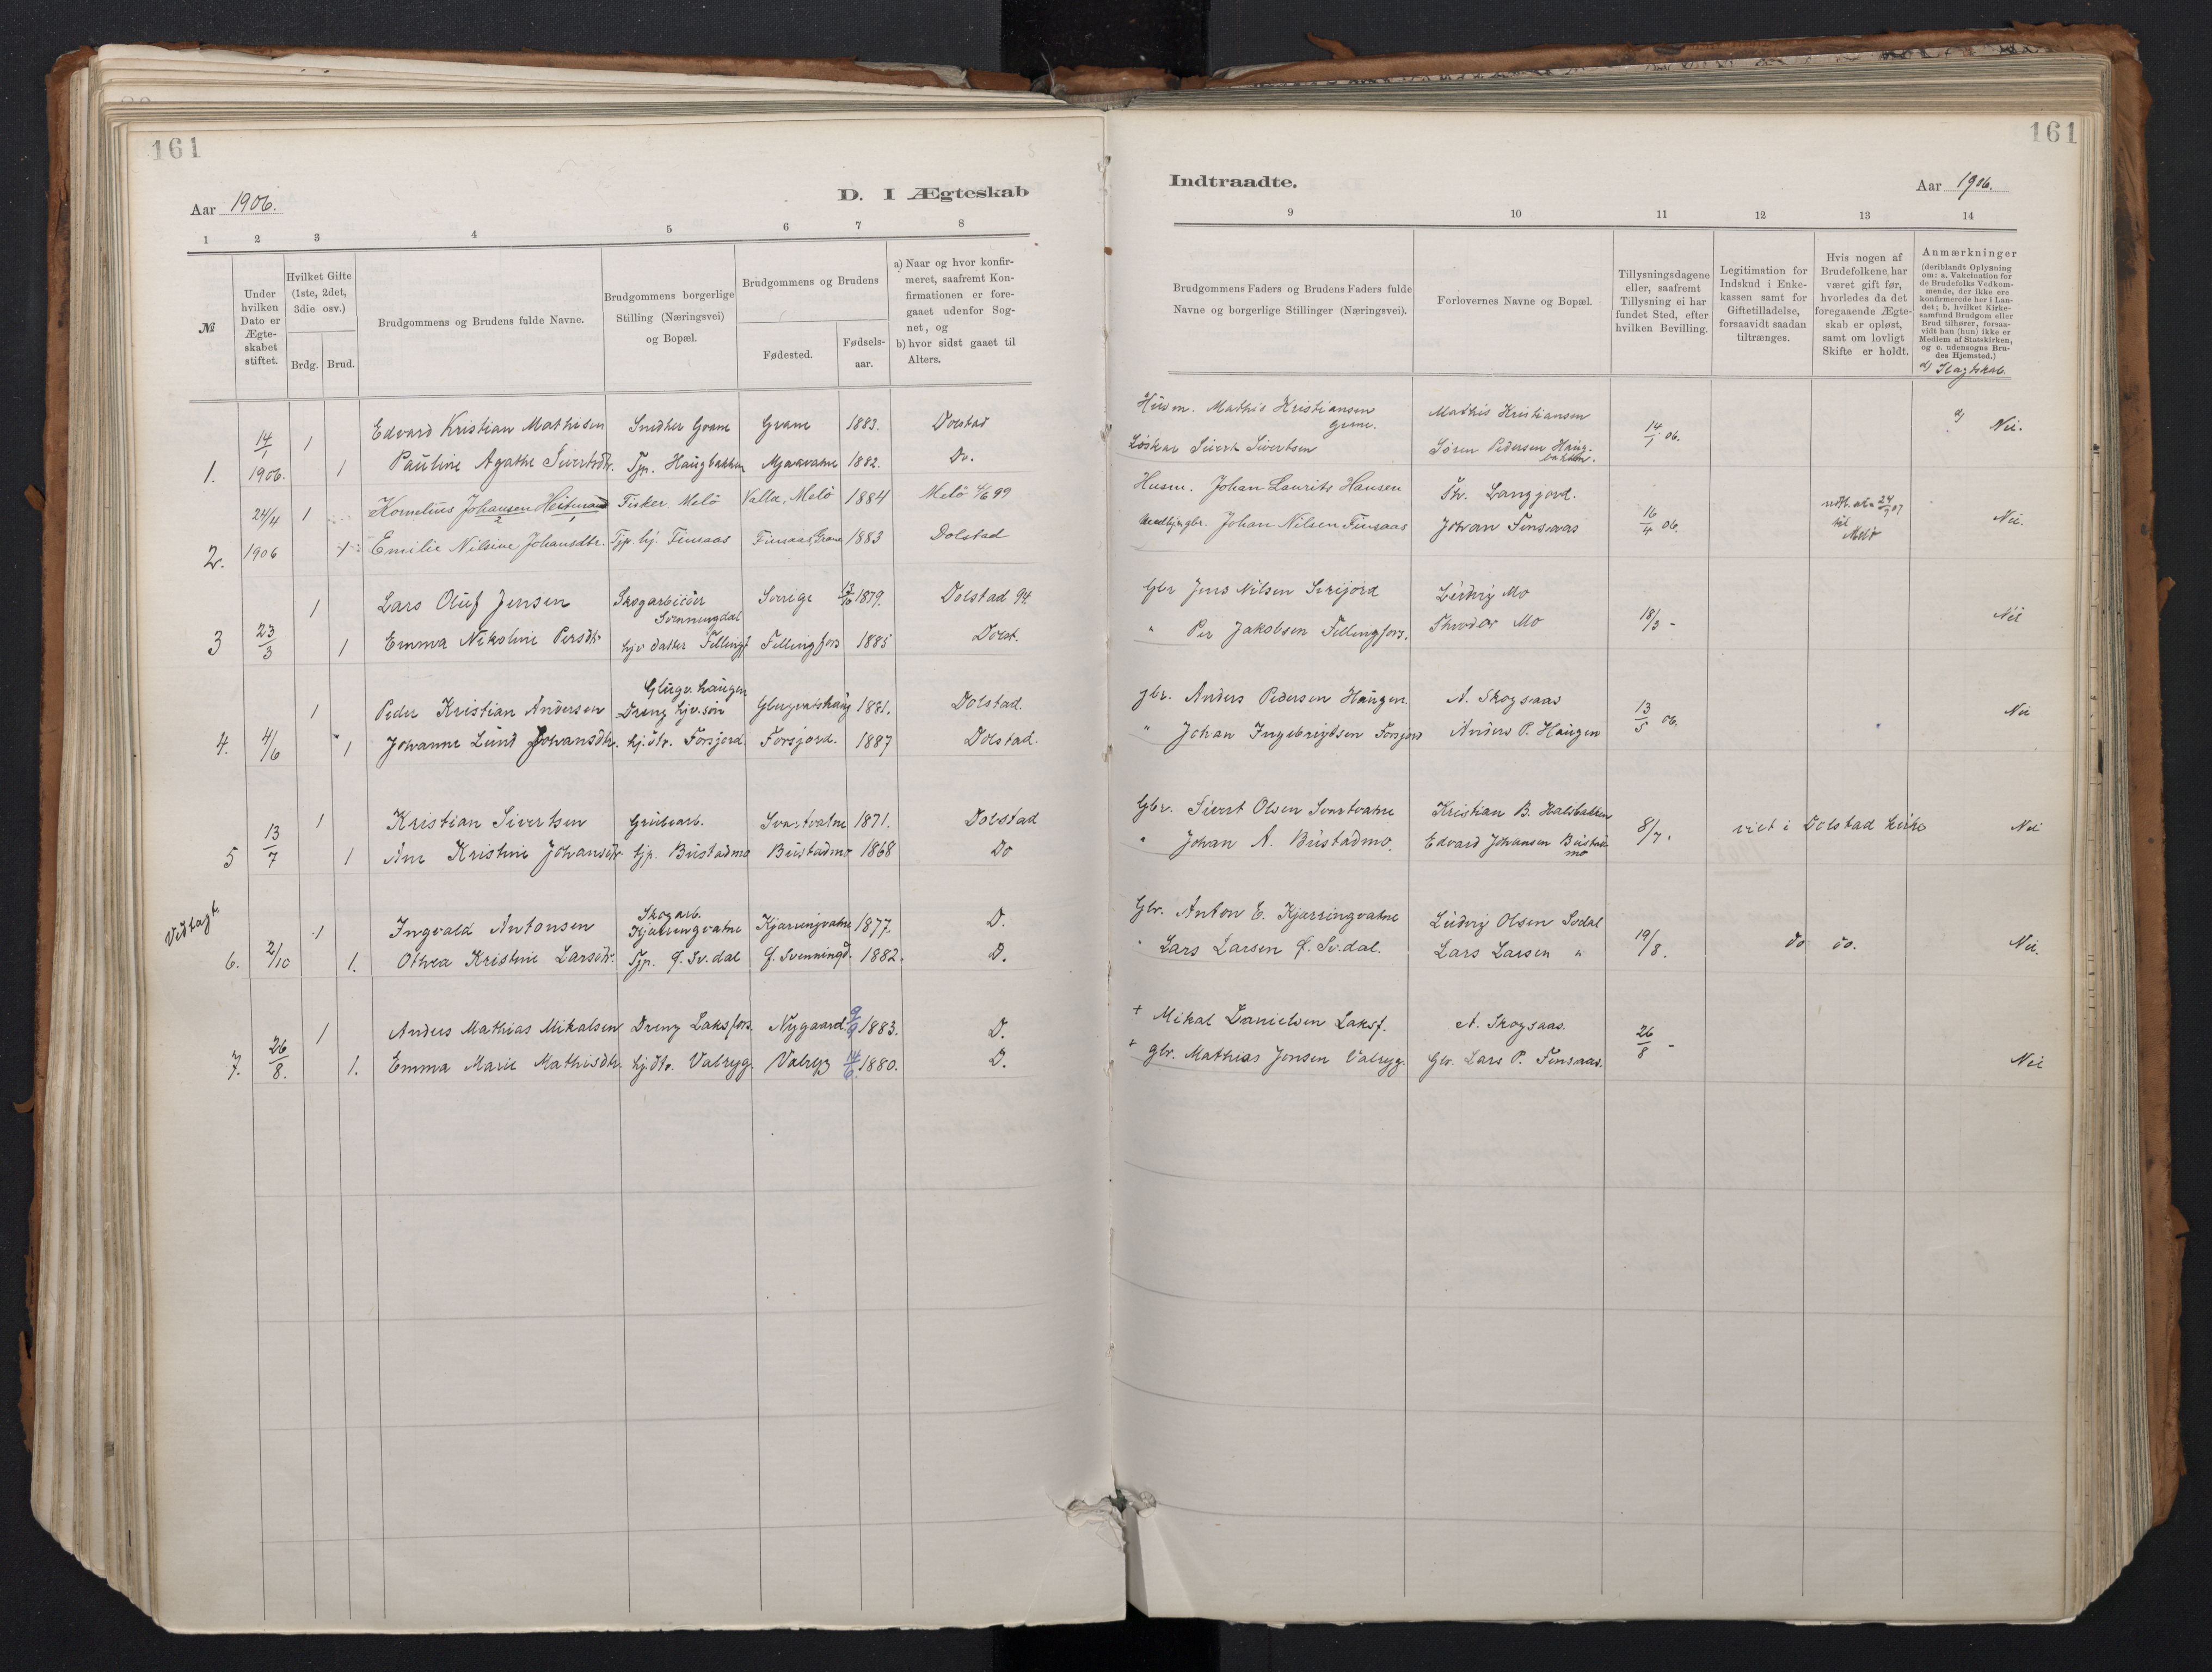 161
Aar 1906.
D. I Ægteskab
1 2 3 4 5 6 7 8
№
Under hvilken Dato er Ægte-skabet stiftet.
Hvilket Gifte (1ste, 2det, 3die osv.)
Brdg. Brud.
Brudgommens og Brudens fulde Navne.
Brudgommens borgerlige Stilling (Næringsvei) og Bopæl.
Brudgommens og Brudens
Fødested.
Fødsels-aar.
a) Naar og hvor konfir-meret, saafremt Kon-firmationen er fore-gaaet udenfor Sog-net, og
b) hvor sidst gaaet til Alters.
14/1 1 Edvard Kristian Mathisen Snedker Grane Grane 1883. Dolstad
1. 1906. 1 Pauline Agathe Sivertsdtr. Tjp. Haugbakken Mjaavatne 1882. Do.
24/4 1 Kornelius Johansen Heitmand Fisker Melö Valla, Melö 1884 Melö 4/6 99
2. 1906 1 Emilie Nilsine Johansdtr. Tjp. hj. Finsaas Finsaas, Grane 1883 Dolstad
1 Lars Oluf Jensen Skogarbeider Svenningdal Sverige 1879. Dolstad 94.
3 23/3 1 Emma Nikoline Persdtr hjv datter Fellingf Fellingfors 1885 Dolst.
1 Peder Kristian Andersen Glugv. haugen Dreng hjv. søn Glugvatshaug 1881. Dolstad.
4. 4/6 1 Johanne Lund Johansdtr. hj. dtr. Forsjord. Forsjord. 1887 Dolstad.
1 Kristian Sivertsen Grubearb. Svartvatne 1871. Dolstad
5 13/7 1 Ane Kristine Johansdtr. tjp. Bustadmo Bustadmo 1868 Do
Vedtagt.
1 Ingvald Antonsen Skogarb. Kjærringvatne Kjærringvatne 1877. D.
6. 2/10 1. Othea Kristine Larsdtr. Tjp. G. Sv.dal G. Svenningd. 1882. D.
1 Anders Mathias Mikalsen Dreng Laksfors. Nygaard. 9/9 1883. D.
7. 26/8. 1. Emma Marie Mathisdtr. hj. dtr. Valryg. Valryg 14/6 1880. D.
161
Indtraadte.
Aar 1906.
9 10 11 12 13 14
Brudgommens Faders og Brudens Faders fulde Navne og borgerlige Stillinger (Næringsvei).
Forlovernes Navne og Bopæl.
Tillysningsdagene eller, saafremt Tillysning ei har fundet Sted, efter hvilken Bevilling.
Legitimation for Indskud i Enke-kassen samt for Giftetilladelse, forsaavidt saadan tiltrænges.
Hvis nogen af Brudefolkene har været gift før, hvorledes da det foregaaende Ægte-skab er opløst, samt om lovligt Skifte er holdt.
Anmærkninger (deriblandt Oplysning om: a. Vakcination for de Brudefolks Vedkom-mende, der ikke ere konfirmerede her i Lan-det; b. hvilket Kirke-samfund Brudgom eller Brud tilhører, forsaa-vidt han (hun) ikke er Medlem af Statskirken, og c. udensogns Bru-des Hjemsted.)
d) Slagtskab.
Husm. Mathis Kristiansen Grane. Mathis Kristiansen 14/1 06. d) Nei.
Løskar Sivert Sivertsen Søren Pedersen Haug-bakken.
Husm. Johan Laurits Hansen Th. Langjord. 24/9 07 til Melö
Johan Nilsen Finsaas Johan Finsaas 16/4 06. Nei.
Gbr Jens Nilsen Sirijord Ludvig Mo
" Per Jakobsen Fellingfors. Theodor Mo 18/3 - Nei
gbr. Anders Pedersen Haugen. A. Skogsaas
" Johan Ingebrigtsen Forsjord Anders P. Haugen 13/5 06. Nei
Gbr. Sivert Olsen Svartvatne Kristian B. Halsbakken
" Johan A. Bustadmo. Edvard Johansen Bustad-mo 8/7. viet i Dolstad kirke Nei
Gbr. Anton E. Kjærringvatne Ludvig Olsen Svdal
" Lars Larsen G. Sv.dal. Lars Larsen " 19/8. do do. Nei.
+ Mikal Danielsen Laksf. A. Skogsaas.
+ gbr. Mathias Jonsen Valrygg. Gbr. Lars P. Finsaas. 26/8 - Nei